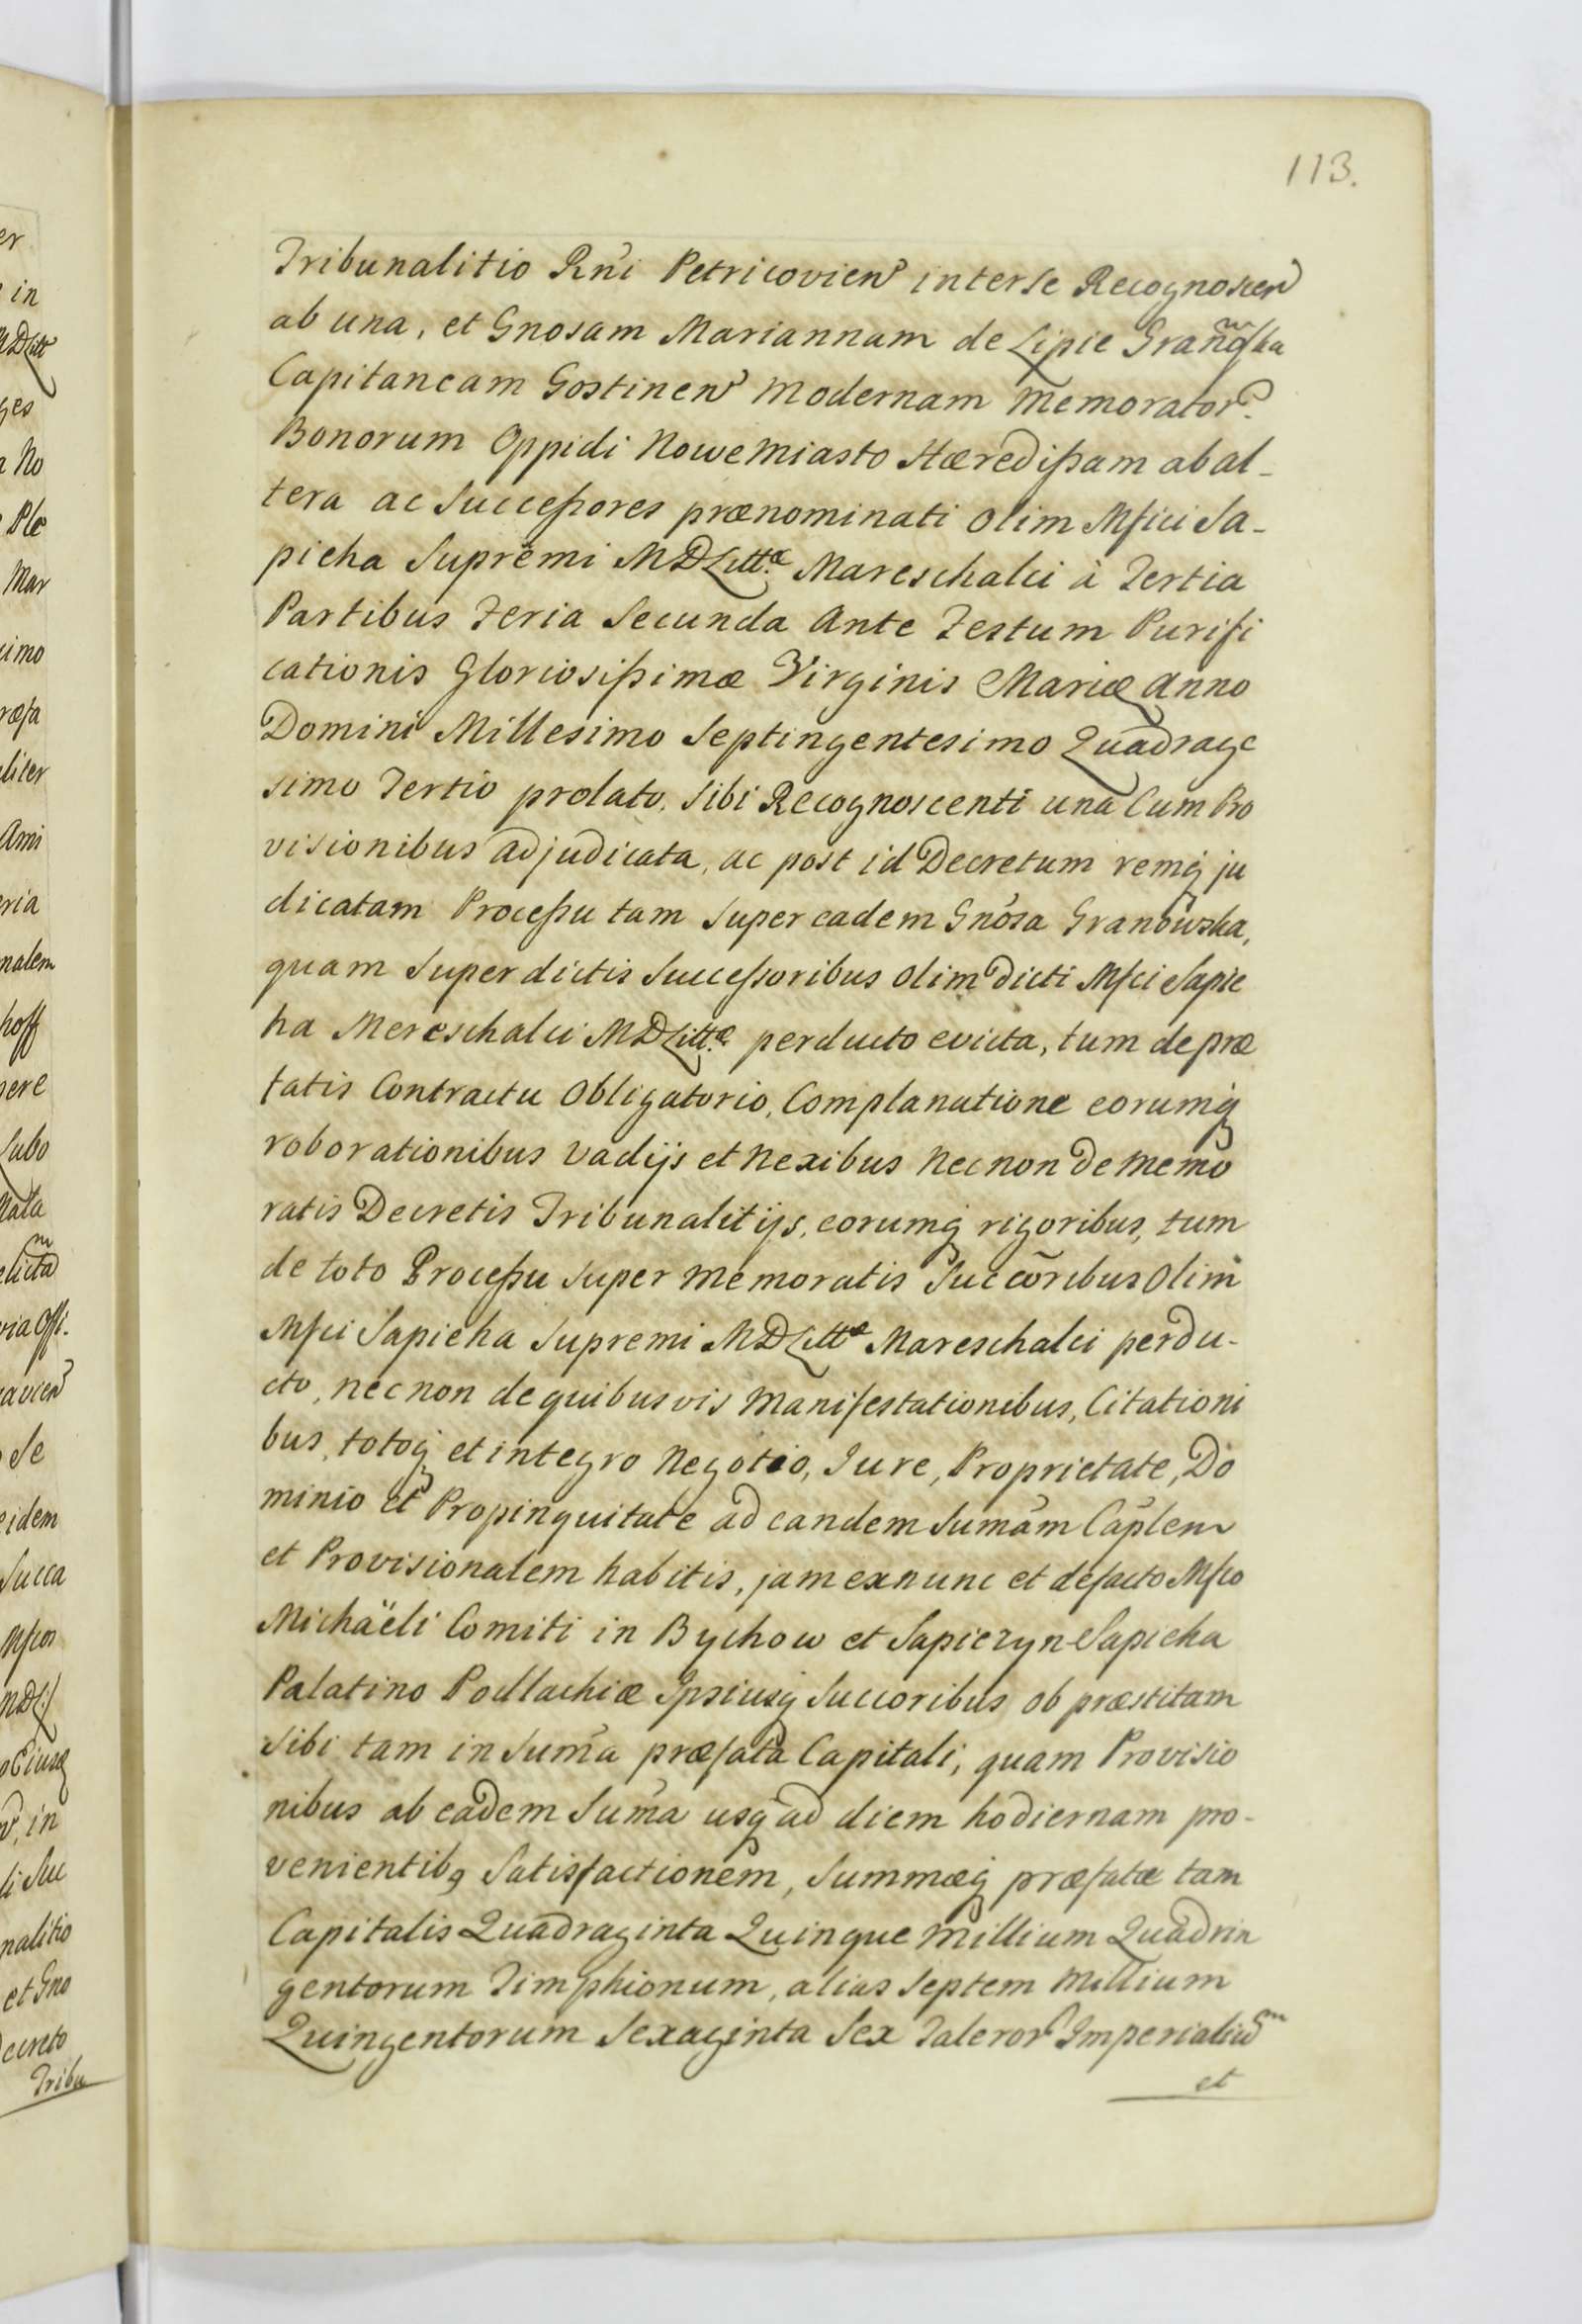 113.
Tribunalitio Rni Petricovien interse Recognoscen
ab una, et Gnosam Mariannam de Lipie Granowska
Capitaneam Gostinen Modernam Memorator.
Bonorum Oppidi Nowe Miasto Hæredißam ab al-
tera ac Succeßores prænominati olim Mfici Sa-
pieha Supremi MDLittæ Mareschalci à Tertia
Partibus Feria Secunda Ante Festum Purifi
cationis Gloriosißimæ Virginis Mariæ Anno
Domini Millesimo Septingentesimo Quadrage
simo Tertio prolato, Sibi Recognoscenti una Cum Pro
visionibus adjudicata, ac post id Decretum remq ju
dicatam Proceßu tam Super eadem Gnosa Granowska,
quam Super dictis Successoribus olim dicti Mfici Sapie
ha Mereschalci MDLittæ perducto evicta, tum de præ
fatis Contractu Obligatorio, Complanatione eorumq
roborationibus Vadijs et Nexibus Nec non de Memo
ratis Decretis Tribunalitijs, eorumq rigoribus, tum
de toto Proceßu Super Memoratis Succoribus Olim
Mfici Sapieha Supremi MDLittæ Mareschalci perdu-
cto, nec non de quibusvis Manifestationibus, Citationi
bus, totoq et integro Negotio, Jure, Proprietate, Do
minio et Propinquitate ad eandem Sumam Caplem
et Provisionalem habitis, jam exnunc et defacto Mfico
Michaëli Comiti in Bychow et Sapiezyn Sapieha
Palatino Podlachiæ Ipsiusq Succoribus ob præstitam
Sibi tam in Suma præfata Capitali, quam Provisio
nibus ab eadem Suma usq ad diem hodiernam pro-
venientibq Satisfactionem, Summæq præfatæ tam
Capitalis Quadraginta Quinque Millium Quadrin
gentorum Timphionum, alias Septem Millium
Quingentorum Sexaginta Sex Taleror Imperialium
et
er
in
MDLitt
ges
No
Plæ
Mar
simo
ræfa
liter
Ami
eria
nalem
hoff
Lubo
Nata
licta
ria Offi.
Se
eidem
Succa
Mficos
in
li Suc
nalitio
et Gno
Tribu